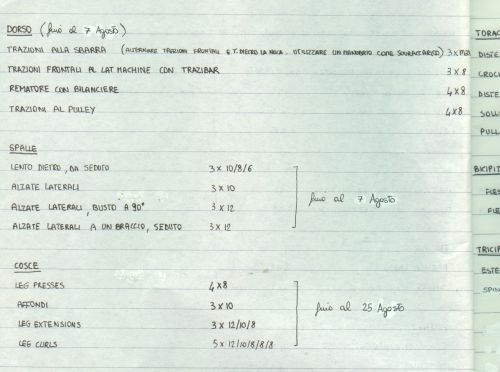 DORSO (fino al 7 Agosto)
TRAZIONI ALLA SBARRA (ALTERNARE TRAZIONI FRONTALI E T. DIETRO LA NUCA. UTILIZZARE UN MANUBRIO COME SOVRACCARICO) 3 x MAX
TRAZIONI FRONTALI AL LAT MACHINE CON TRAZIBAR 3 x 8
REMATORE CON BILANCIERE 4 x 8
TRAZIONI AL PULLEY 4 x 8
SPALLE
LENTO DIETRO, DA SEDUTO 3 x 10/8/6
ALZATE LATERALI 3 x 10
ALZATE LATERALI, BUSTO A 90° 3 x 12
fino al 7 Agosto
ALZATE LATERALI A UN BRACCIO, SEDUTO 3 x 12
COSCE
LEG PRESSES 4 x 8
AFFONDI 3 x 10
fino al 25 Agosto
LEG EXTENSIONS 3 x 12/10/8
LEG CURLS 5 x 12/10/8/8/8
TORAC
DISTE
CROCI
DISTE
SOLL
PULL
BICIPIT
FLES
FLE
TRICIP
ESTE
SPIN